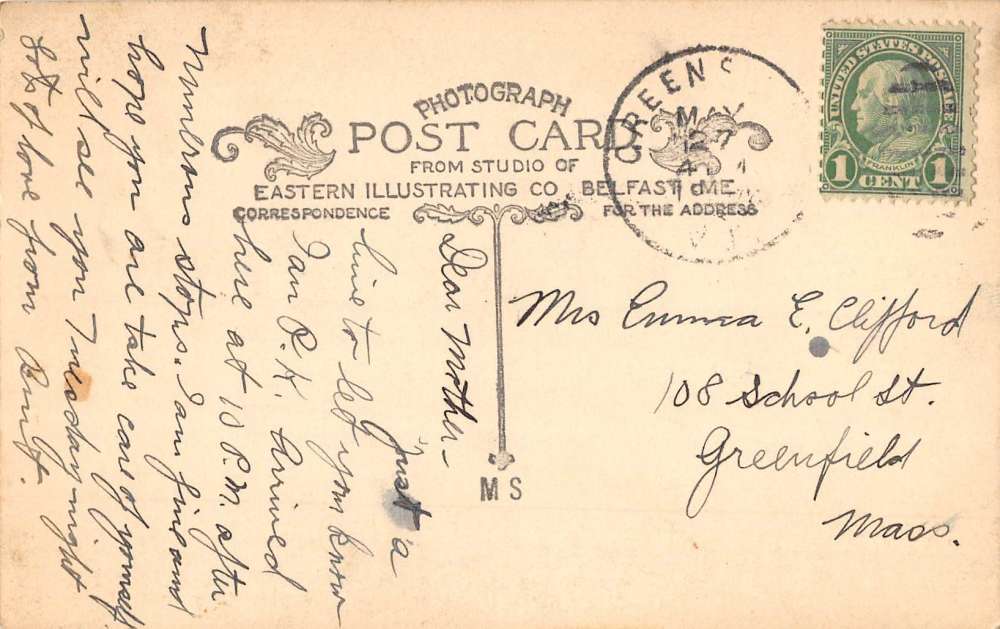 PHOTOGRAPH
POST CARD
FROM STUDIO OF
EASTERN ILLUSTRATING CO. BELFAST ME.
CORRESPONDENCE
FOR THE ADDRESS
GREENS
MAY
27
4
VT
UNITED STATES POSTAGE
FRANKLIN
1 CENT 1
Dear Mother-
Just a
line to let you know
I am O.K. Arrived
here at 10 P.M. after
numbrous stops. I am fine and
hope you are take care of yourself
will see you Tuesday night
Lots of love from
Mrs Emma E. Clifford
108 School St.
Greenfield
Mass.
MS